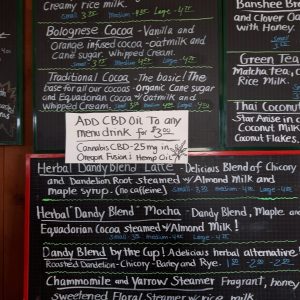 Creamy rice milk.
Small 3.50 Medium - 4.00 Large - 4.75
Bolognese Cocoa - Vanilla and
Orange infused cocoa - oatmilk and
Cane sugar. Whipped Cream.
Small Medium Large
Traditional Cocoa - The basic! The
base for all our cocoas - Organic Cane sugar
and Equadorian Cocoa w/ Oatmilk and
Whipped Cream. Small Medium Large
ADD CBD Oil To any
menu drink for $3.00
Cannabis CBD - 25 mg in
Oregon Fusion's Hemp Oil
Banshee
and Clover
with Honey
Green Tea
Matcha tea,
Rice Milk.
Thai Coconut
Star Anise in
Coconut Milk
Coconut Flakes
Herbal "Dandy Blend" Latte - Delicious Blend of Chicory
and Dandelion Root steamed w/ Almond Milk and
Maple syrup. (no caffeine) Small Medium Large
Herbal "Dandy Blend" Mocha - Dandy Blend, Maple and
Equadorian Cocoa steamed w/ Almond Milk!
Small Medium Large
Dandy Blend by the Cup! A delicious herbal alternative
Roasted Dandelion - Chicory - Barley and Rye.
Chammomile and Yarrow Steamer Fragrant, honey
sweetened Floral Steamer w/ rice milk